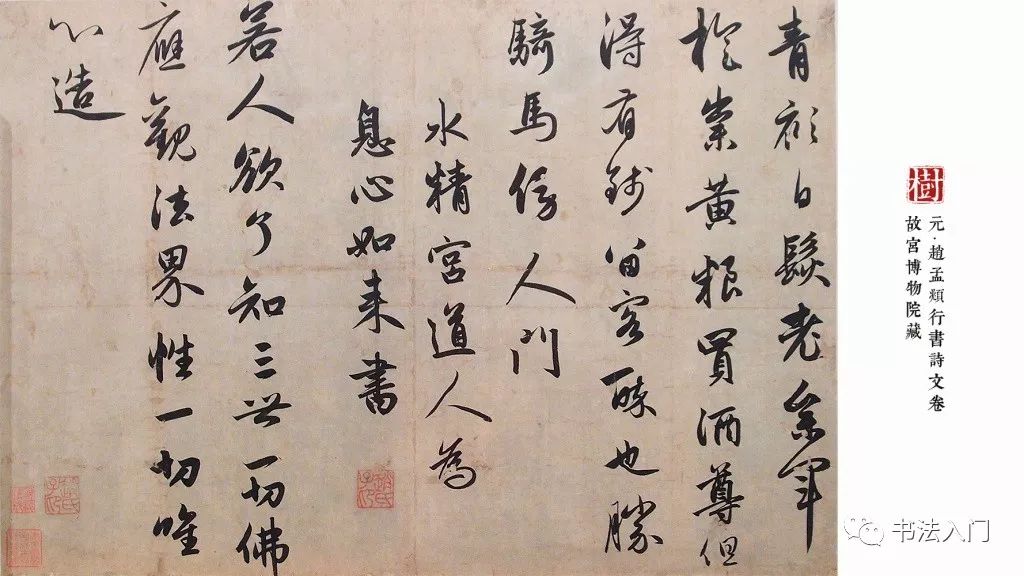 青衫白髮老參軍
旋糶黃粮買酒尊但
得有錢留客醉也勝
騎馬傍人門
水精宮道人為
息心如来書
若人欲了知三世一切佛
應觀法界性一切唯
心造
趙氏子昂
樹
元·趙孟頫行書詩文卷
故宮博物院藏
书法入门